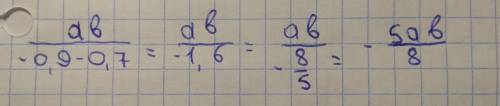 ab/(-0,9-0,7) = ab/(-1,6) = ab/(-8/5) = - 5ab/8